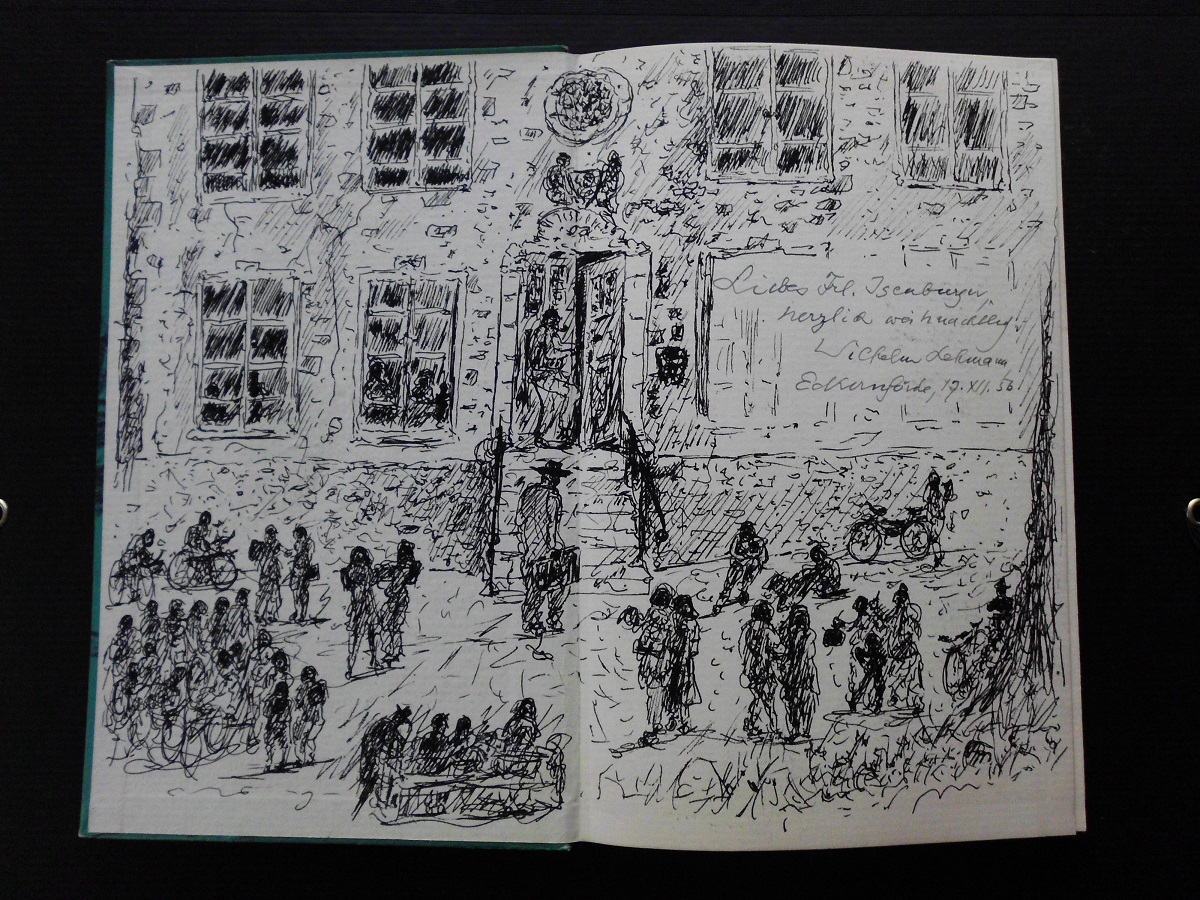 Liebes Frl. Isenburger,
herzlich weihnachtlich
Wilhelm Lehmann
Eckernförde, 17.XII.56